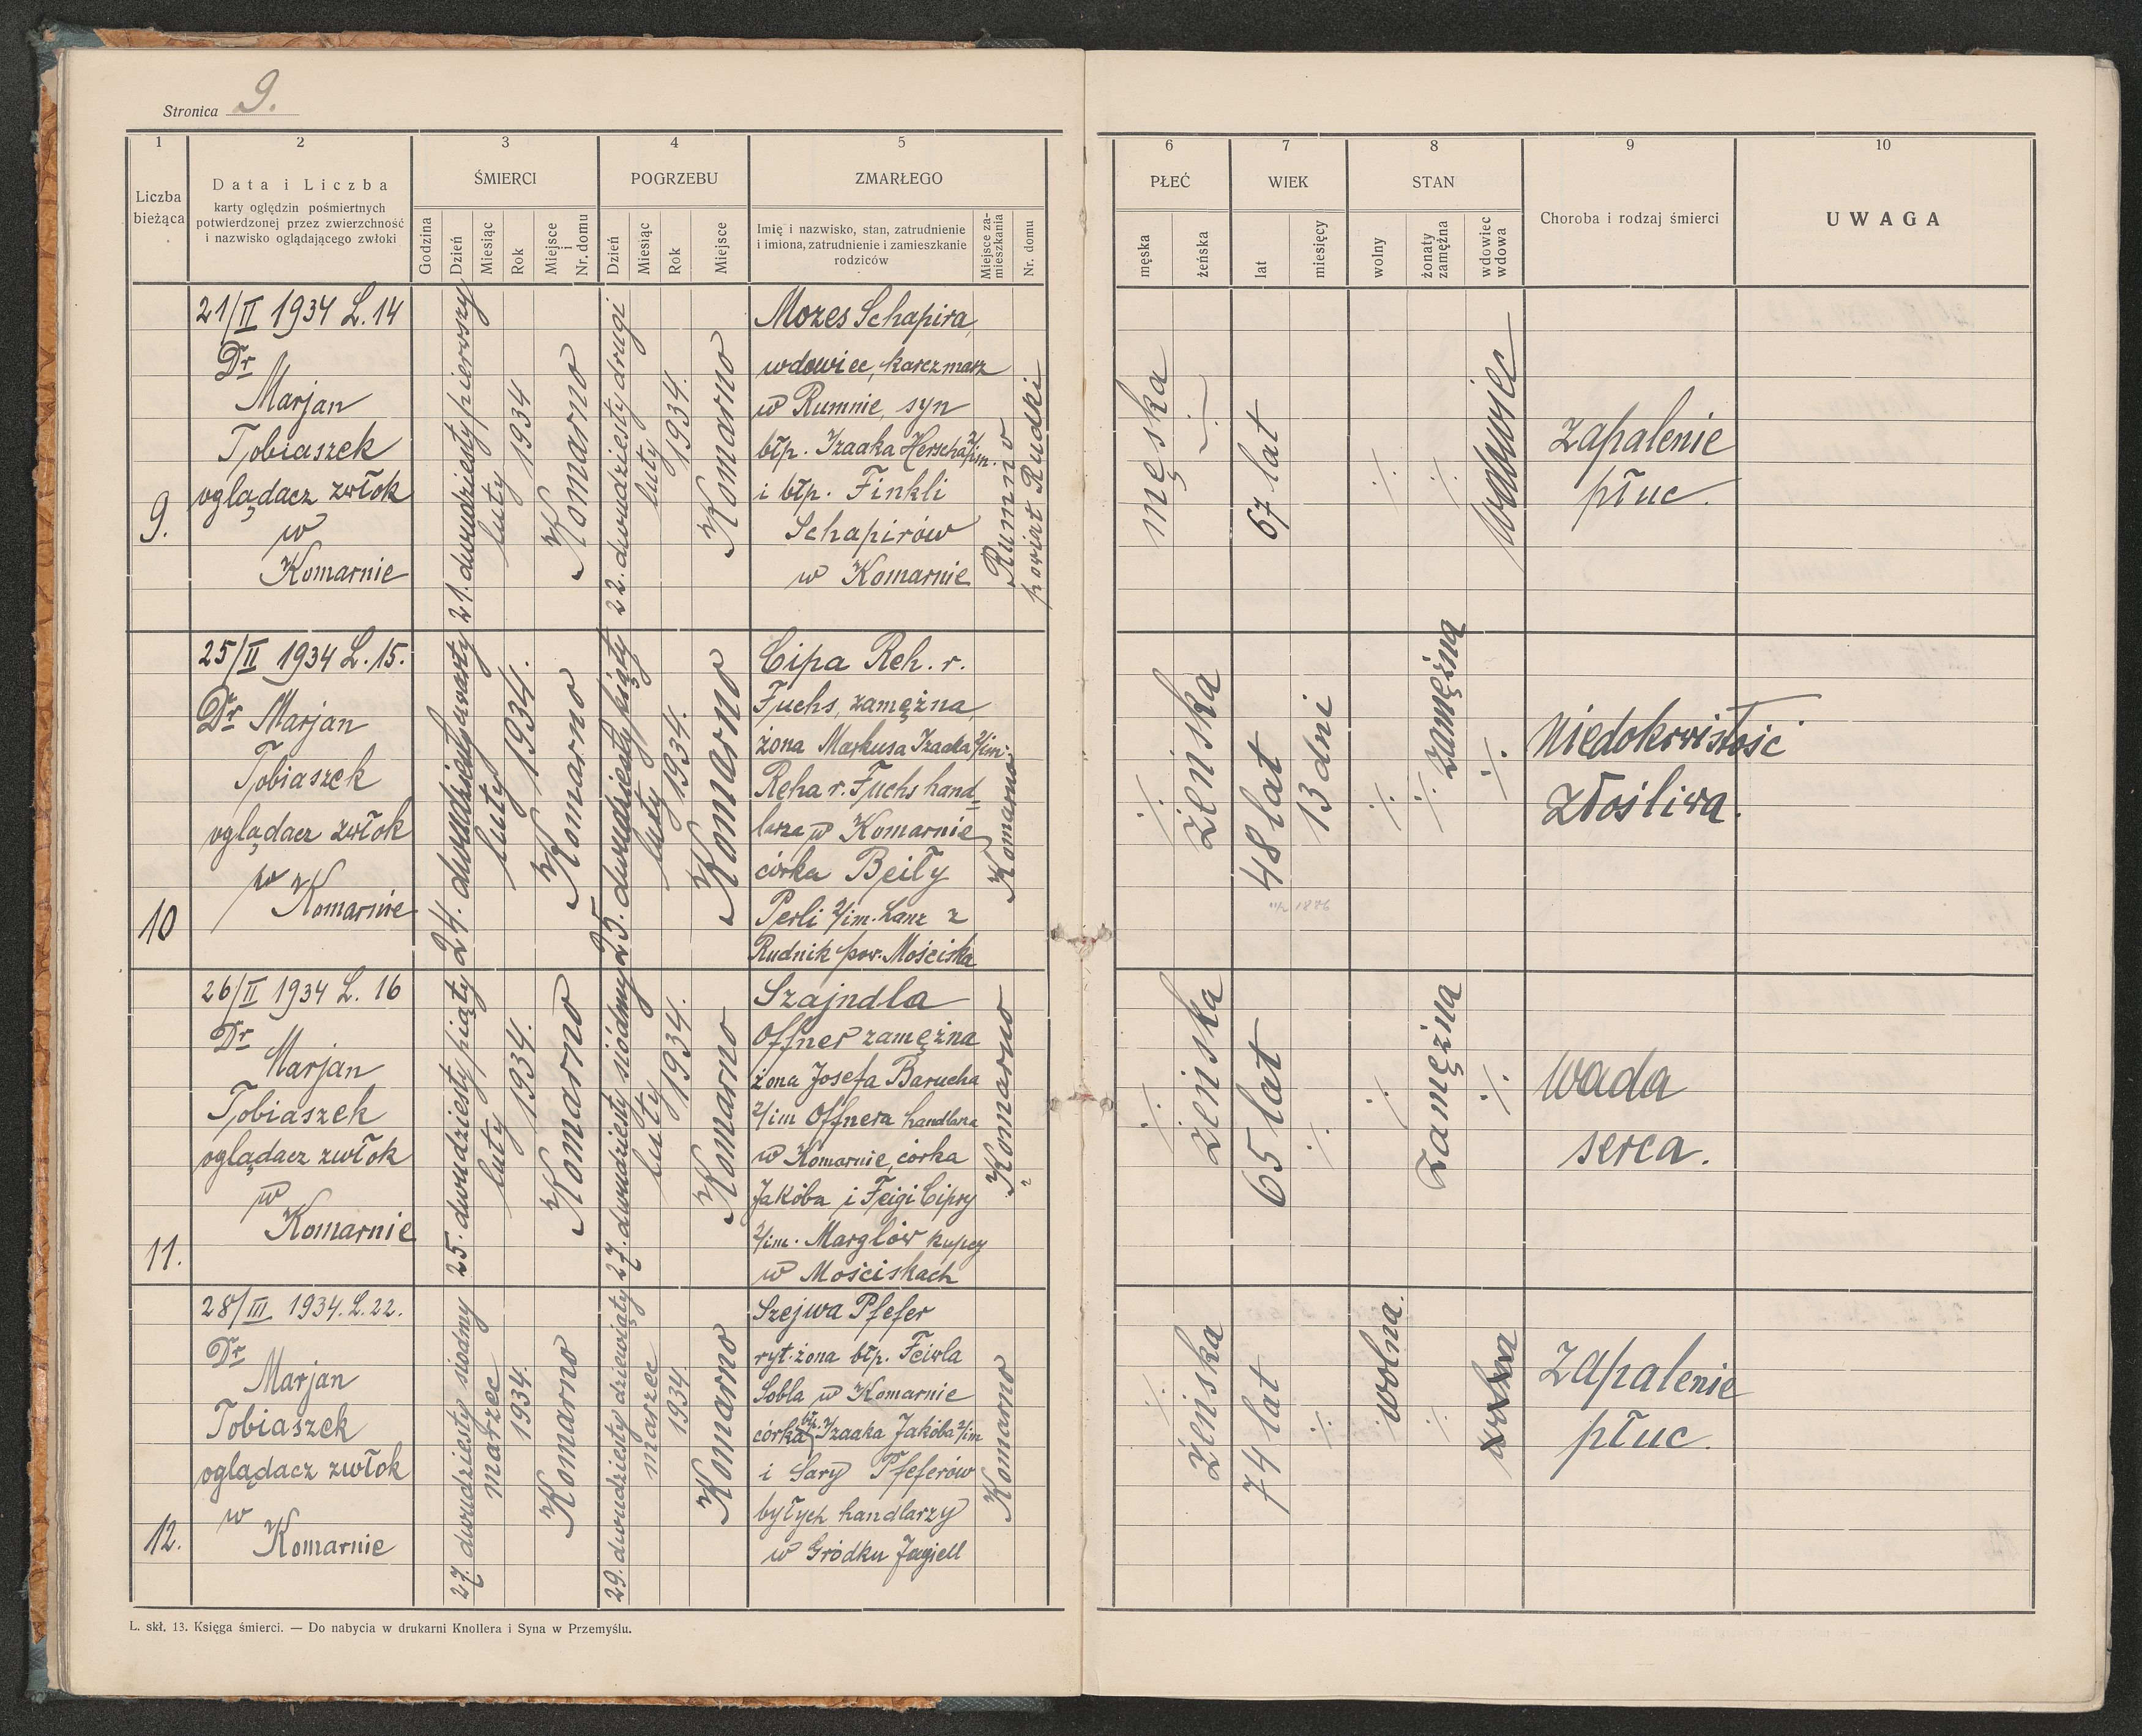 Stronica 9.
1
2
3
4
5
6
7
8
9
10
Liczba bieżąca
Data i Liczba
karty oględzin pośmiertnych
potwierdzonej przez zwierzchność
i nazwisko oglądającego zwłoki
ŚMIERCI
Godzina
Dzień
Miesiąc
Rok
Miejsce i Nr. domu
POGRZEBU
Dzień
Miesiąc
Rok
Miejsce
ZMARŁEGO
Imię i nazwisko, stan, zatrudnienie
i imiona, zatrudnienie i zamieszkanie
rodziców
Miejsce zamieszkania
Nr. domu
PŁEĆ
męska
żeńska
WIEK
lat
miesięcy
STAN
wolny
żonaty zamężna
wdowiec wdowa
Choroba i rodzaj śmierci
UWAGA
9.
21/II 1934 L. 14
Dr
Marjan
Tobiaszek
oglądacz zwłok
w
Komarnie
21. dwudziesty pierwszy
luty
1934
Komarno
22. dwudziesty drugi
luty
1934.
Komarno
Mozes Schapira,
wdowiec, karczmarz
w Rumnie, syn
błp. Izaaka Herscha 2/im.
i błp. Finkli
Schapirów
w Komarnie
Rumno
powiat Rudki
męska
67 lat
wdowiec
Zapalenie
płuc.
10
25/II 1934 L. 15.
Dr Marjan
Tobiaszek
oglądacz zwłok
w
Komarnie
24. dwudziesty czwarty
luty
1934.
Komarno
25. dwudziesty piąty
luty
1934.
Komarno
Cipa Reh. r.
Fuchs, zamężna,
żona Markusa Izaaka 2/im.
Reha r. Fuchs hand=
larza w Komarnie
córka Beiły
Perli 2/im. Lanz z
Rudnik pow. Mościska
Komarno
żeńska
48 lat
13 dni
zamężna
Niedokrwistość
złośliwa.
11.
26/II 1934 L. 16
Dr
Marjan
Tobiaszek
oglądacz zwłok
w
Komarnie
25. dwudziesty piąty
luty
1934.
Komarno
27. dwudziesty siódmy
luty
1934.
Komarno
Szajndla
Offner zamężna
żona Josefa Barucha
2/im Offnera handlarza
w Komarnie, córka
Jakóba i Feigi Cipry
2/im. Marglów kupcy
w Mościskach
Komarno
żeńska
65 lat
Zamężna
wada
serca.
12.
28/III 1934. L. 22.
Dr
Marjan
Tobiaszek
oglądacz zwłok
w
Komarnie
27. dwudziesty siódmy
marzec
1934.
Komarno
29. dwudziesty dziewiąty
marzec
1934
Komarno
Szejwa Pfefer
ryt. żona błp. Feiwla
Sobla w Komarnie
córka błp. Izaaka Jakóba 2/im
i Sary Pfeferów
byłych handlarzy
w Gródku Jagiell
Komarno
żeńska
74 lat
wolna.
Zapalenie
płuc.
L. skł. 13. Księga śmierci. — Do nabycia w drukarni Knollera i Syna w Przemyślu.